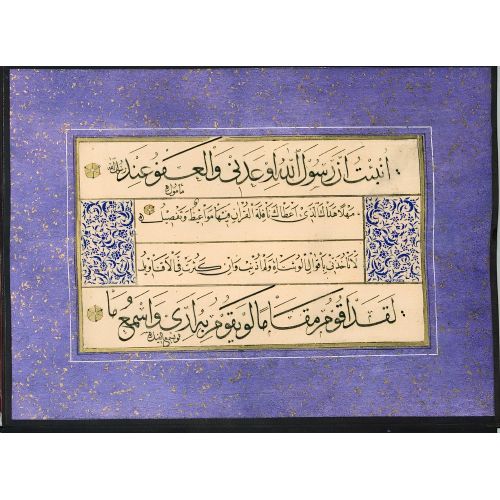 انبئت ان رسول الله اوعدني والعفو عند رسول الله
مأمول
مهلا هداك الذي اعطاك نافلة القران فيها مواعيظ وتفصيل
لا تأخذني باقوال الوشاة ولم اذنب وان كثرت في الاقاويل
لقد اقوم مقاما لو يقوم به ارى واسمع ما
لو يسمع الفيل